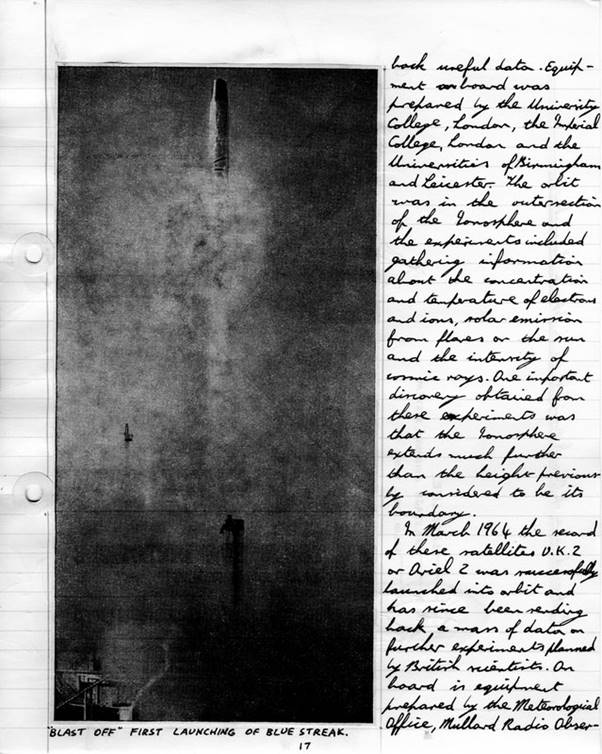 back useful data. Equip-
ment onboard was
prepared by the University
College, London, the Imperial
College, London and the
Universities of Birmingham
and Leicester. The orbit
was in the outersection
of the Ionosphere and
the experiments included
gathering information
about the concentration
and temperature of electrons
and ions, solar emission
from flares on the sun
and the intensity of
cosmic rays. One important
discovery obtained from
these experiments was
that the Ionosphere
extends much further
than the height previous-
ly considered to be its
boundary.
In March 1964 the second
of these satellites U.K.2
or Ariel 2 was successfully
launched into orbit and
has since been sending
back a mass of data on
further experiments planned
by British scientists. On
board is equipment
prepared by the Meteorological
Office, Mullard Radio Obser-
"BLAST OFF" FIRST LAUNCHING OF BLUE STREAK.
17